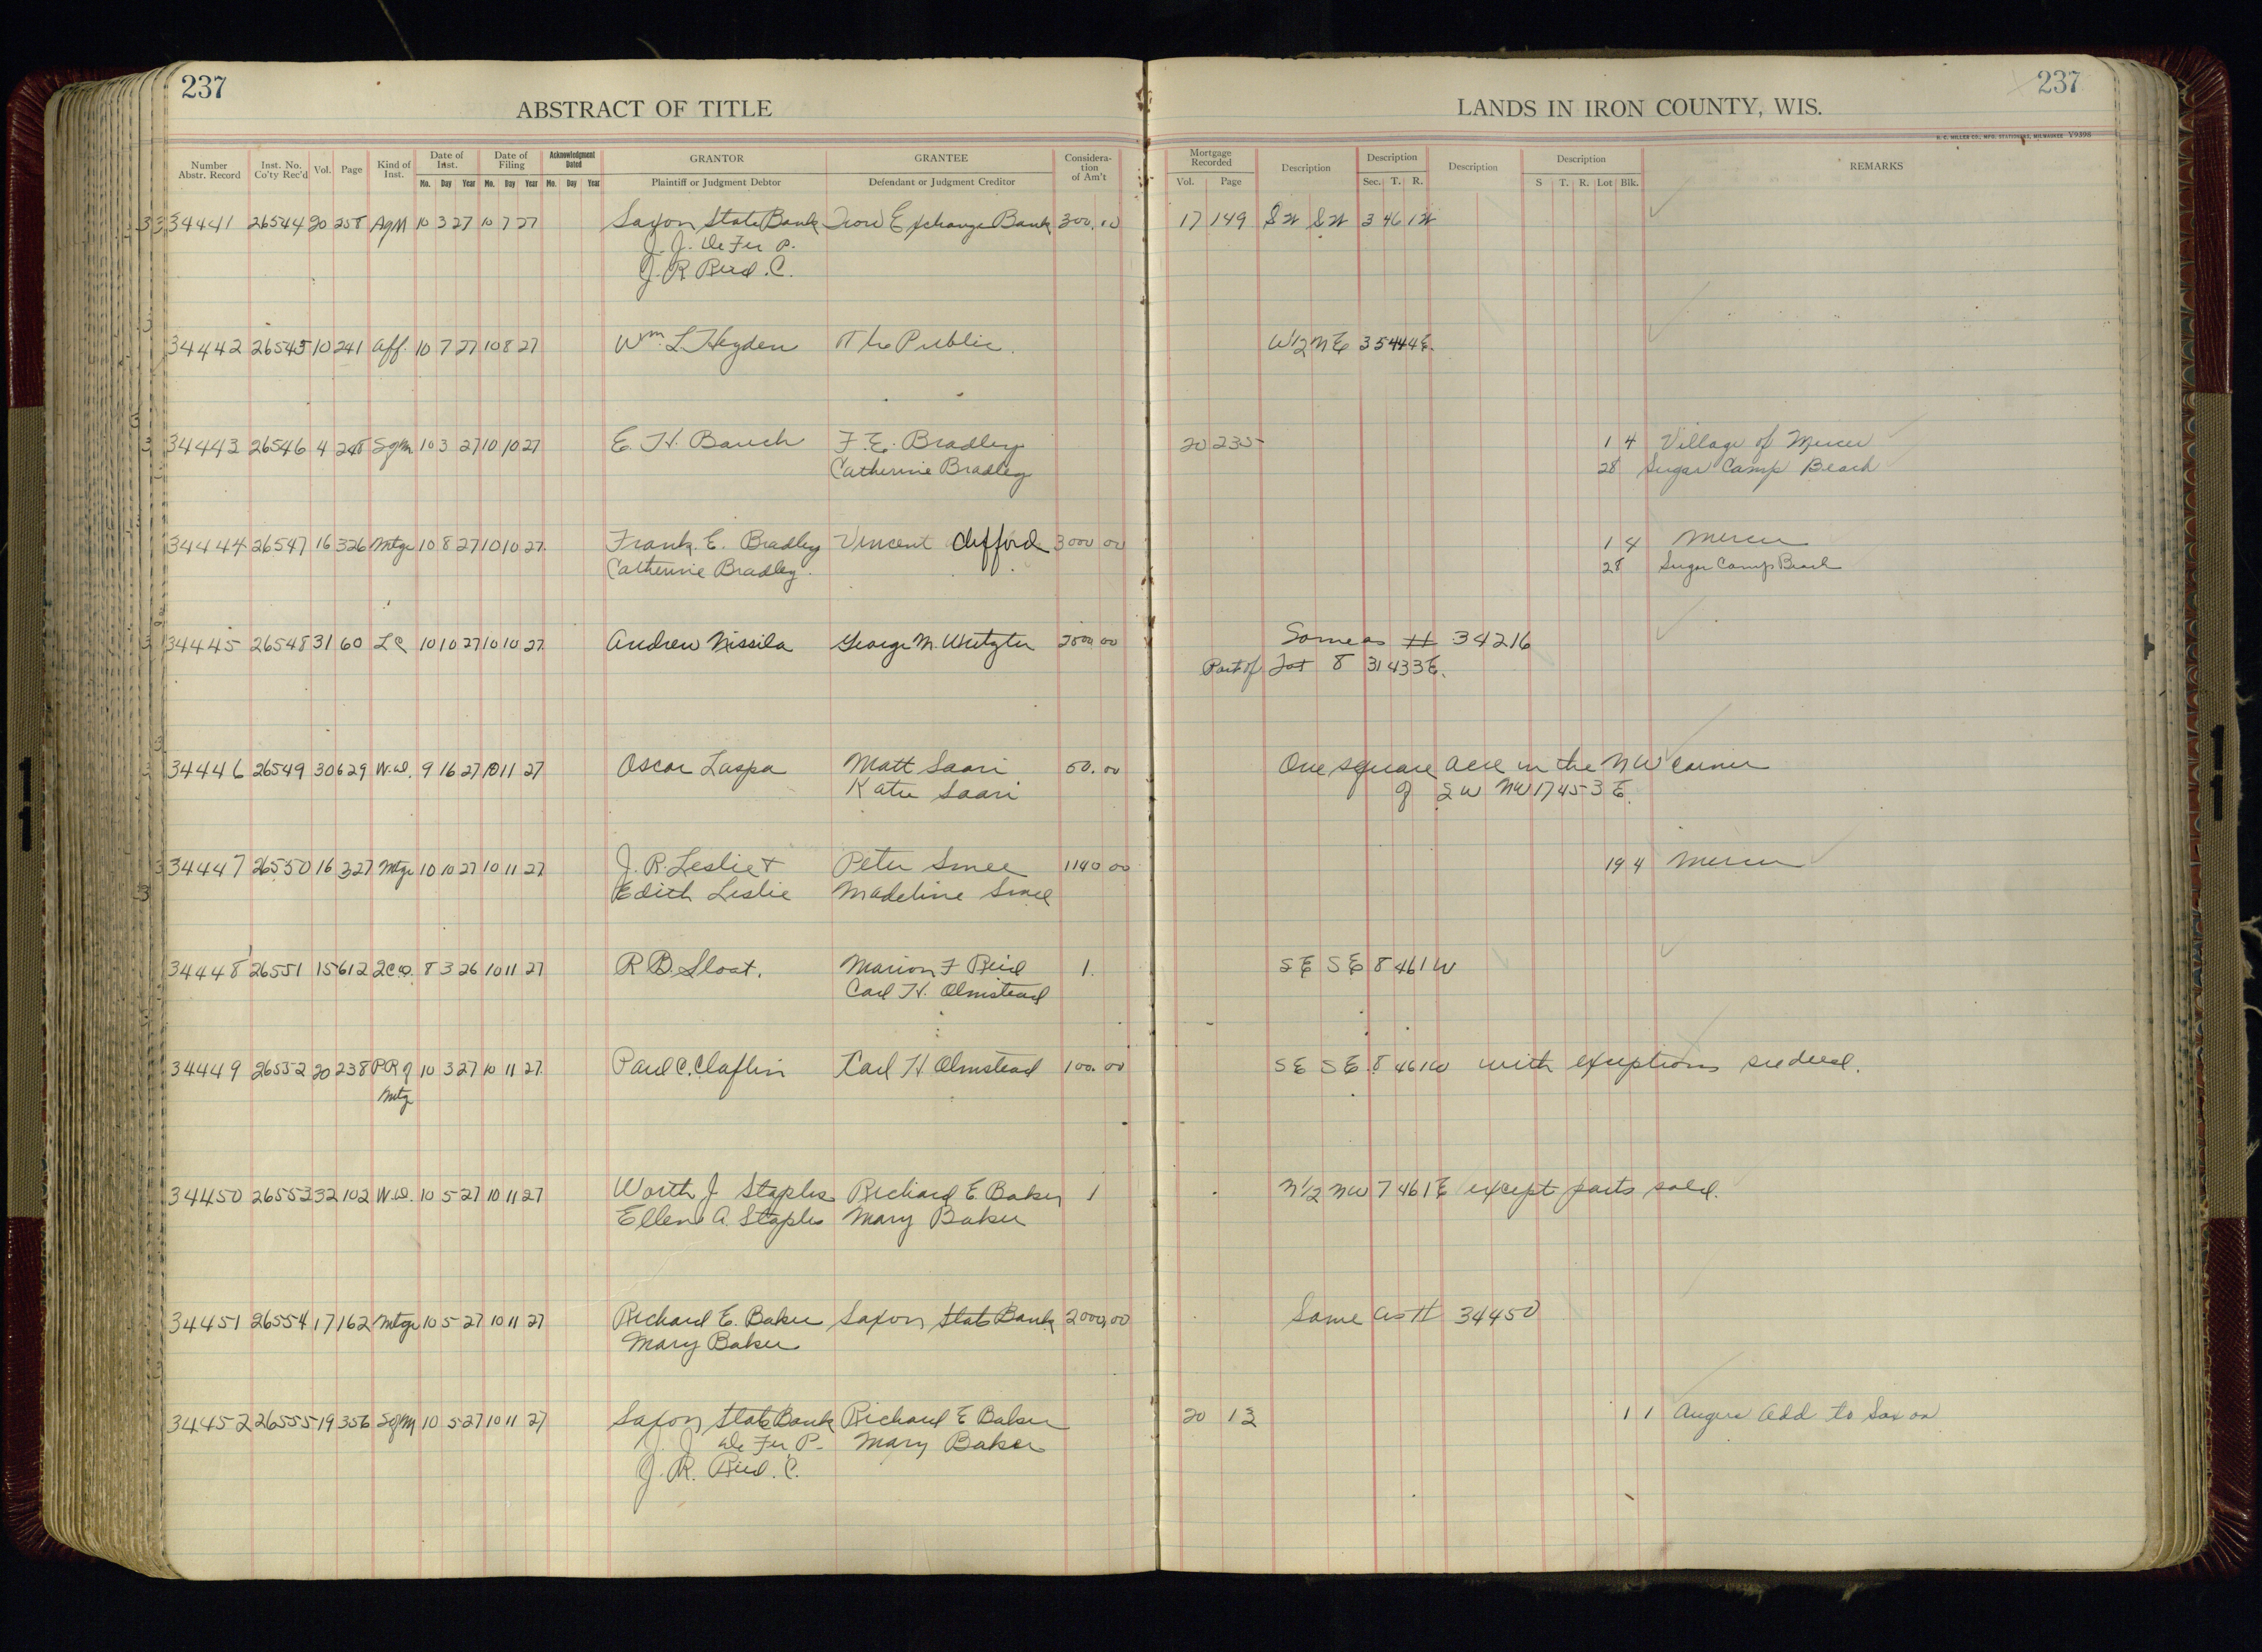 237
237
ABSTRACT OF TITLE
LANDS IN IRON COUNTY, WIS.
H. C. MILLER CO., MFG. STATIONERS, MILWAUKEE V9398
Number Abstr. Record Inst. No. Co'ty Rec'd Vol. Page Kind of Inst. Date of Inst. Mo. Day Year Date of Filing Mo. Day Year Acknowledgment Dated Mo. Day Year GRANTOR Plaintiff or Judgment Debtor GRANTEE Defendant or Judgment Creditor Considera- tion of Am't Mortgage Recorded Vol. Page Description Description Sec. T. R. Description Description S T. R. Lot Blk. REMARKS
34441 26544 20 258 AgM 10 3 27 10 7 27 Saxon State Bank Iron Exchange Bank 300.00 17 149 SW SW 3 46 1W
J. J. De Fer P.
J. R. Reid. C.
34442 26545 10 241 Aff. 10 7 27 10 8 27 Wm. L. Heyden The Public. W1/2 NE 35 44 4E.
34443 26546 4 248 SgM 10 3 27 10 10 27 E. H. Bauch F. E. Bradley 20 235 1 4 Village of Mercer
Catherine Bradley 28 Sugar Camp Beach
34444 26547 16 326 Mtge 10 8 27 10 10 27 Frank E. Bradley Vincent Clifford 3000 00 1 4 Mercer
Catherine Bradley. 28 Sugar Camp Beach
34445 26548 31 60 LC 10 10 27 10 10 27 Andrew Nissila George M. 00 Same as # 34216
Part of Lot 8 31 43 3E.
34446 26549 30 629 W.D. 9 16 27 10 11 27 Oscar Laspa Matt Saari 50.00 One square acre in the NW corner
Katie Saari of SW NW 17 45 3 E.
34447 26550 16 327 Mtge 10 10 27 10 11 27 J. R. Leslie + Peter Smee 1140 00 19 4 Mercer
Edith Leslie Madeline Smee
34448 26551 15 612 2C.D. 8 3 26 10 11 27 R. B. Sloat. Marion F Reid 1. SE SE 8 46 1W
Carl H. Olmstead
34449 26552 20 238 P.R of 10 3 27 10 11 27 Paul C. Claflin Carl H Olmstead 100.00 SE SE 8 46 1W with exceptions see deed.
Mtg
34450 26553 32 102 W.D. 10 5 27 10 11 27 Worth J Staples Richard E. Baker 1 N1/2 NW 7 46 1E except parts sold.
Ellen A. Staples Mary Baker
34451 26554 17 162 Mtge 10 5 27 10 11 27 Richard E. Baker Saxon State Bank 2000.00 Same as # 34450
Mary Baker
34452 26555 19 356 SgM 10 5 27 10 11 27 Saxon State Bank Richard E Baker 20 13 1 1 Angers Add to Saxon
J. J. De Fer P. Mary Baker
J. R. Reid. C.